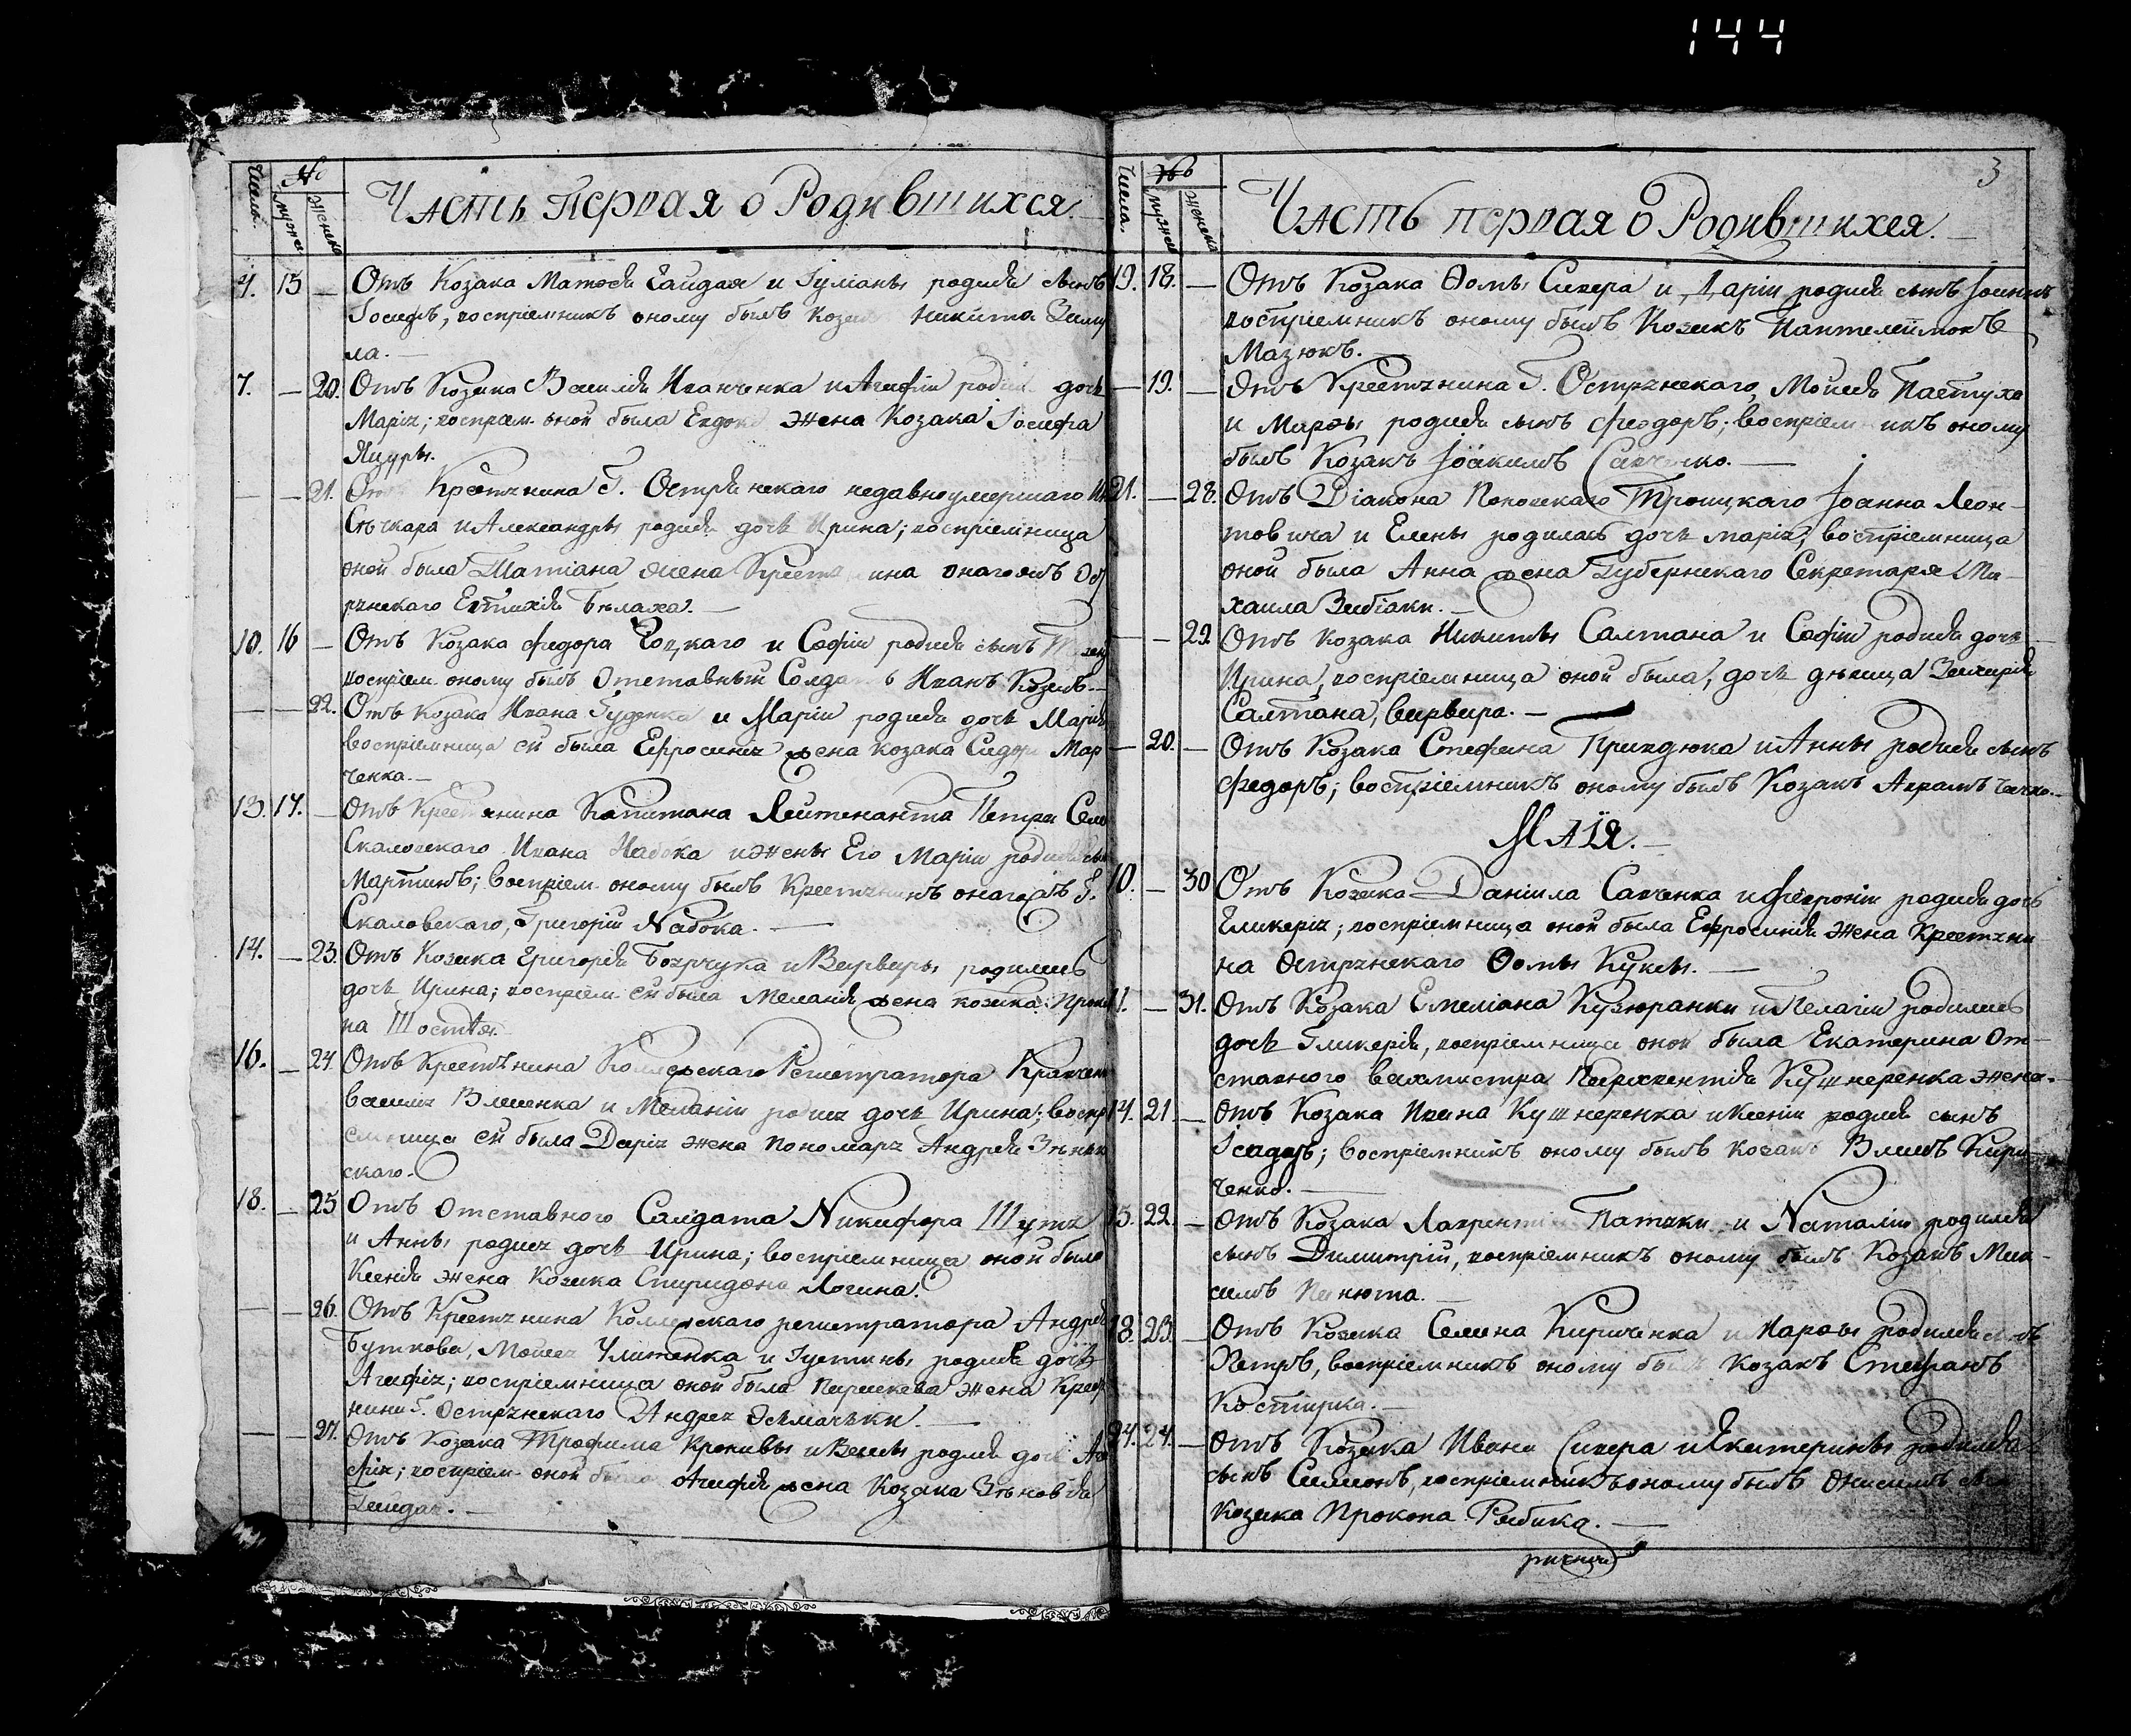 144
Числа. № мужеск женска
Часть первая о Родившихся.
4. 15 — Отъ Козака Матвѣя Гайдая и Іуліаны родился сынъ
Іосифъ, воспріемникъ оному былъ Козакъ Никита
ла. —
7. — 20. Отъ Козака Василія Иванченка и Агафіи родил дочь
Марія; воспріем. оной была Евдок жена Козака Іосифа
Яцуры.
— — 21. Отъ Крестянина Г. Остранскаго недавноумершаго
Сѣчкара и Александры родися дочь Ирина; воспріемница
оной была Татіана жена Крестянина онагожъ
рянскаго Евтихія Бѣлаха. —
10. 16 — Отъ Козака Федора Гоцкаго и Софіи родися сынъ
воспріем. оному былъ Отставный Солдатъ Иванъ Козелъ. —
— — 22. Отъ Козака Ивана Гуденка и Маріи родися дочь Марія
воспріемница ей была Ефросинія жена козака Сидора Мар
ченка. —
13. 17. — Отъ Крестянина Капитана Лейтенанта Петра
Скаловскаго Ивана Набока и жены Его Маріи родился сынъ
Мартинъ; воспріем. оному былъ Крестянинъ онагожъ Г.
Скаловскаго, Григорій Набока. —
14. — 23. Отъ Козака Григорія Боярчука и Варвары родилась
дочь Ирина; воспріем. ей была Меланія жена козака Проко
па Шостья.
16. — 24. Отъ Крестянина Коллежскаго Регистратора Кравченк
Василія Власенка и Меланіи родися дочь Ирина; воспр
емница ей была Дарія жена пономаря Андрея Зѣньк
скаго. —
18. — 25 Отъ Отставного Салдата Никифора Шутя
и Анны родися дочь Ирина; воспріемница оной была
Ксенія жена Козака Спиридона Логина.
— — 26. Отъ Крестянина Коллежскаго регистратора Андрея
Буткова, Мойсея Улитенка и Іустины родися дочь
Агафія; воспріемница оной была Параскева жена Крестя
нина Г. Остранскаго Андрея Осьмачьки. —
— — 27. Отъ Козака Трофима Кропивы и Вассы родися дочь Ага
фія; воспріем. оной была Агафія жена Козака Зѣновія
Гайдая. —
3
Числа. мужеск женска
Часть первая о Родившихся. —
19. 18. — Отъ Козака Ѳомы Сквера и Даріи родися сынъ Іоаннъ
воспріемникъ оному былъ Козакъ Пантелеймонъ
Мазюкъ. —
— 19. — Отъ Крестянина Г. Острянскаго, Мойсея Пастуха
и Марѳы родися сынъ Феодоръ; воспріемникъ оному
былъ Козакъ Іоакимъ Савченко. —
21. — 28. Отъ Діакона Поповскаго Троицкаго Іоанна Леон-
товича и Елены родилась дочь Марія; воспріемница
оной была Анна жена Губернскаго Секретаря Ми-
хаила Забіаки. —
— — 29. Отъ Козака Никиты Салтана и Софіи родися дочь
Ирина, воспріемница оной была, дочь дѣвица Захарія
Салтана, Варвара. —
— 20. — Отъ Козака Стефана Приндюка и Анны родися сынъ
Федоръ; воспріемникъ оному былъ Козакъ Аврамъ
МАІЯ. —
10. — 30 Отъ Козака Даніила Савченка и Февроніи родися дочь
Гликерія; воспріемница оной была Ефросинія жена Крестяни
на Острянскаго Ѳомы Куксы. —
11. — 31. Отъ Козака Емеліана Кузюранки и Пелагіи родилась
дочь Гликерія, воспріемница оной была Екатерина От-
ставного вахмистра Кушнеренка жена. —
14. 21 — Отъ Козака Ивана Кушнеренка и Ксеніи родися сынъ
Ісидоръ; воспріемникъ оному былъ козакъ Власъ Кири
ченко. —
15. 22. — Отъ Козака Лаврентія Патяки и Наталіи родился
сынъ Димитрій, воспріемникъ оному былъ Козакъ Мак-
симъ Панюта. —
18. 23. — Отъ Козака Семена Кириченка и Марѳы родился сынъ
Петръ, воспріемникъ оному былъ Козакъ Стефанъ
Костирка. —
24. 24. — Отъ Козака Ивана Сквера и Екатерины родился
сынъ Симеонъ, воспріемникъ оному былъ Онисимъ сынъ
Козака Прокопа Рыбика. —